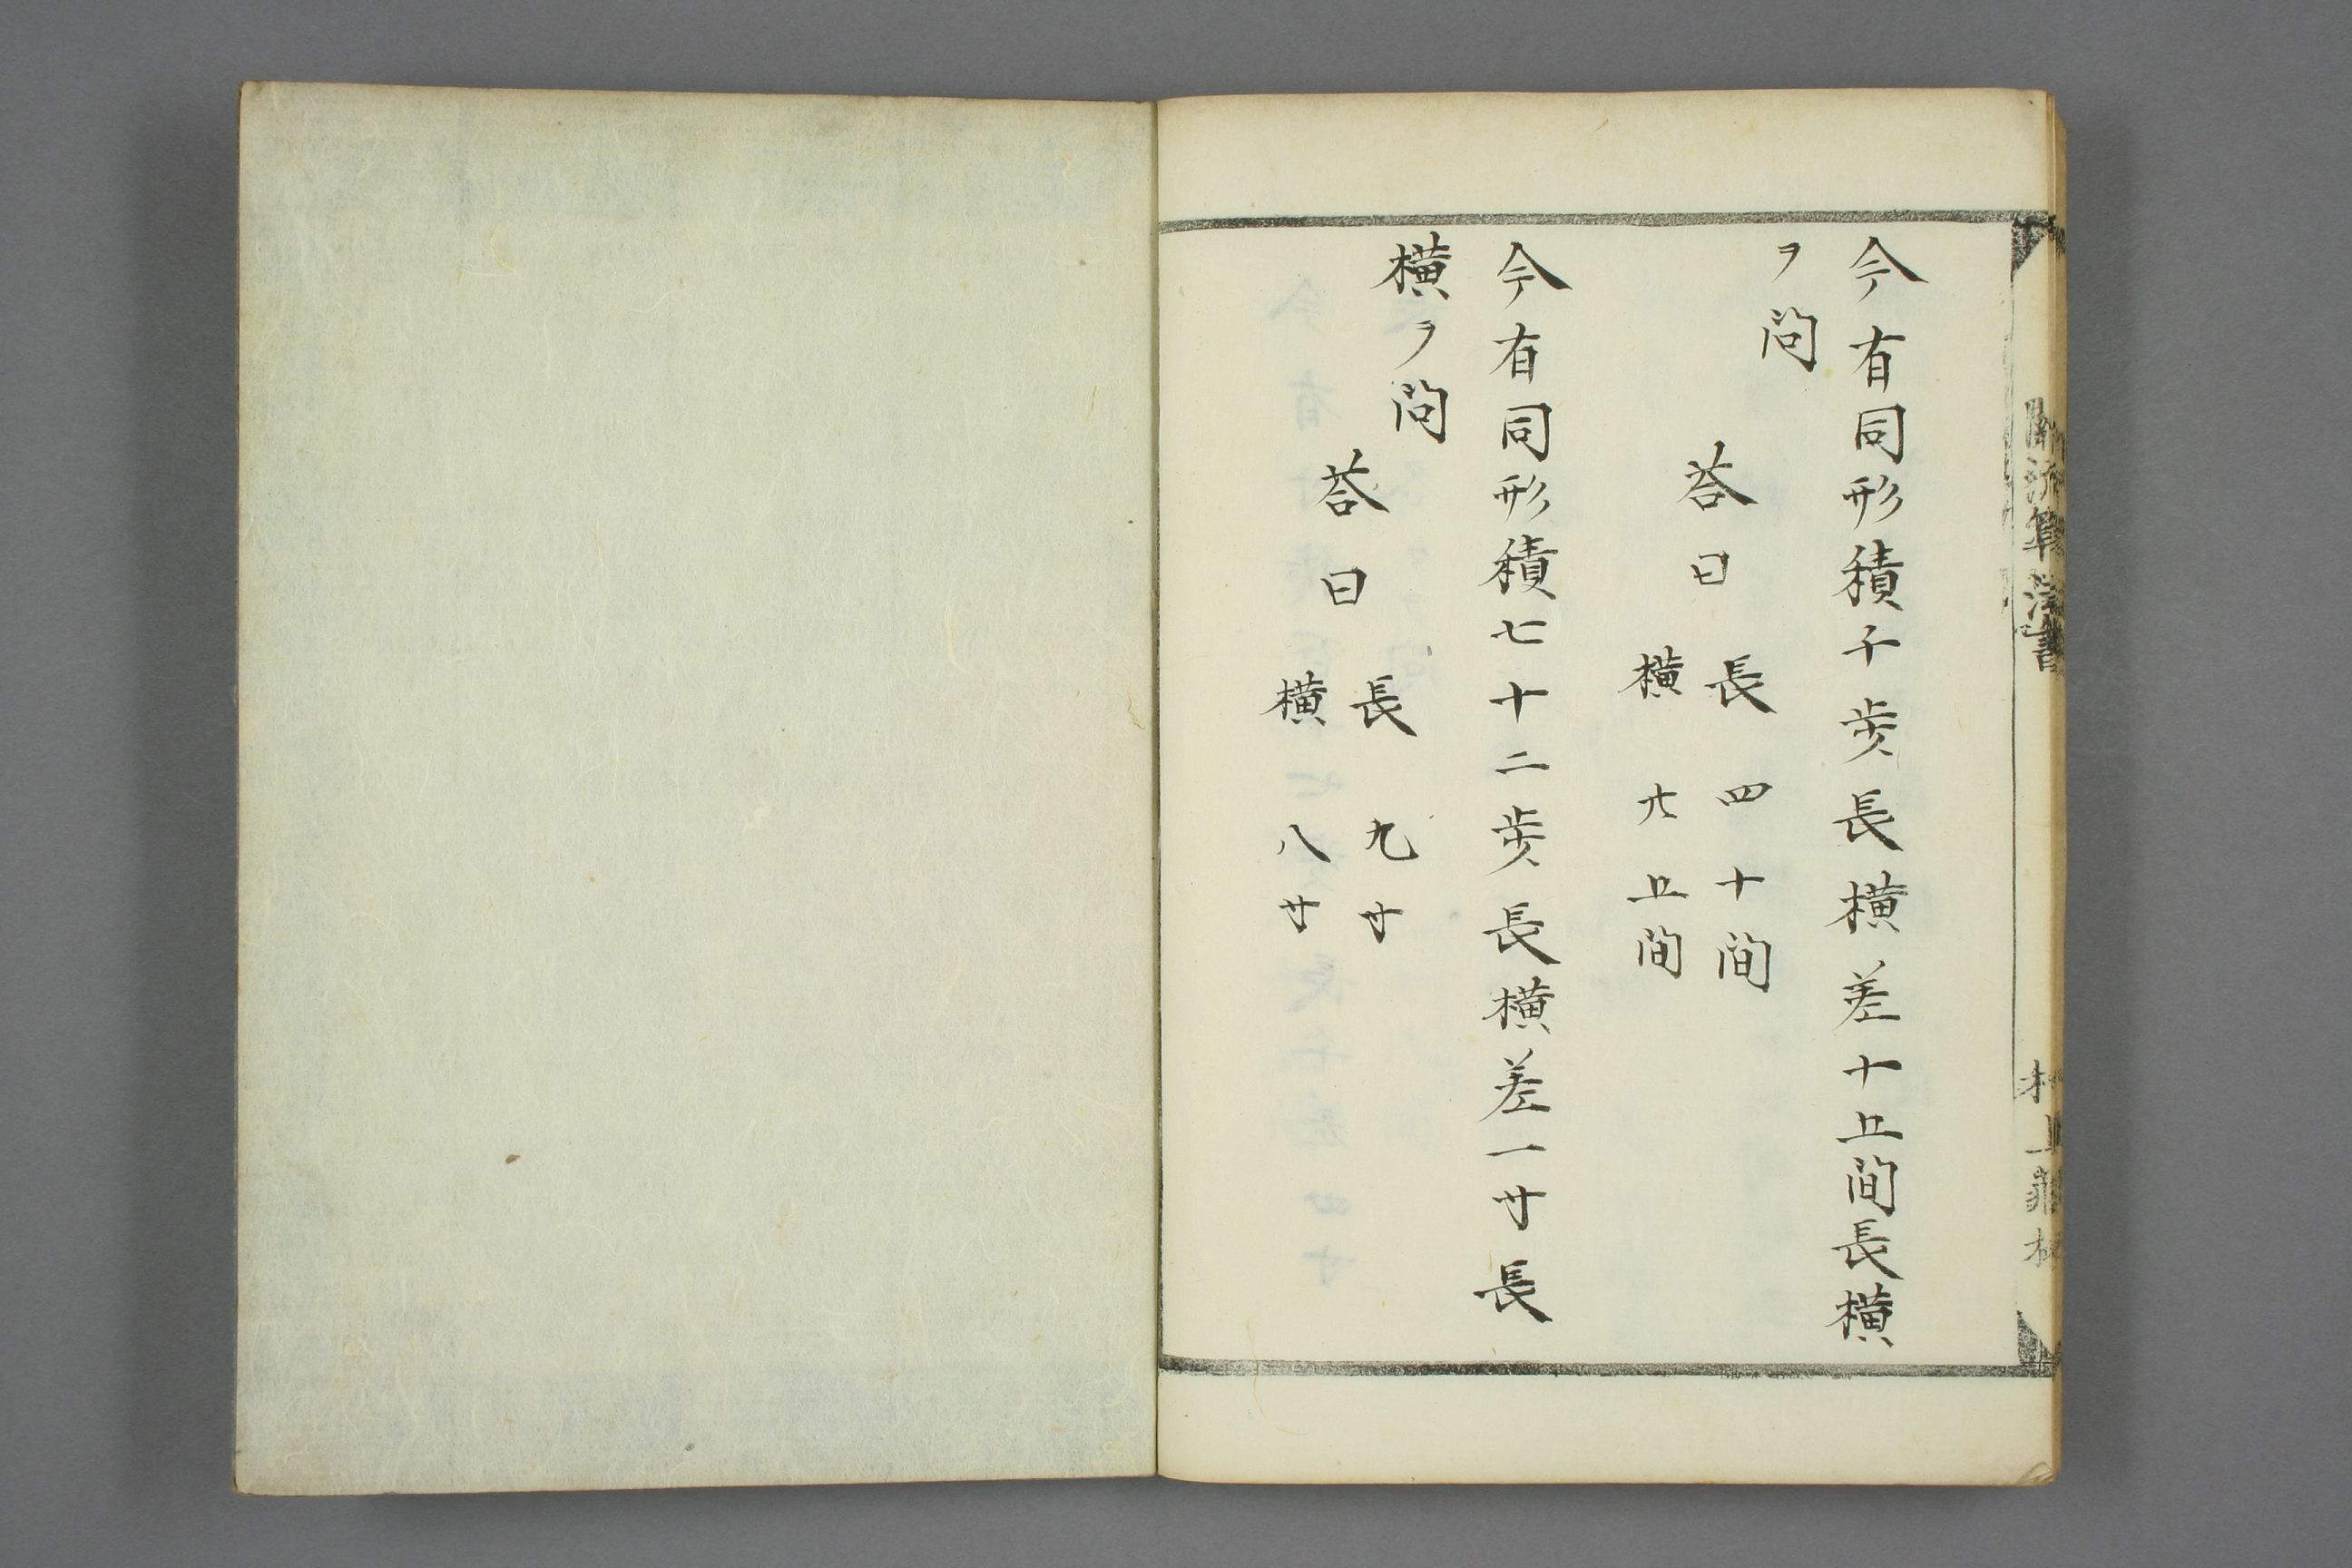 關流算法書
村上
今有同形積千歩長横差十五間長横
ヲ問
荅曰
長四十間
横廿五間
今有同形積七十二歩長横差一寸長
横ヲ問
荅曰
長九寸
横八寸